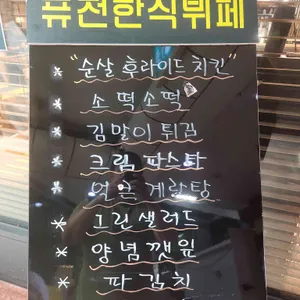 퓨전한식뷔페
* "순살 후라이드 치킨"
* 소떡소떡
* 김말이 튀김
* 크림 파스타
* 얼큰 계란탕
* 그린샐러드
* 양념깻잎
* 파김치